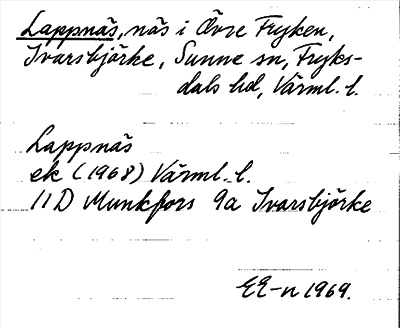 Lappnäs, näs i Övre Fryken,
Ivarsbjörke, Sunne sn, Fryks-
dals hd, Värml. l.
Lappnäs
ek (1968) Värml. l.
11D Munkfors 9a Ivarsbjörke
EE-n 1969.